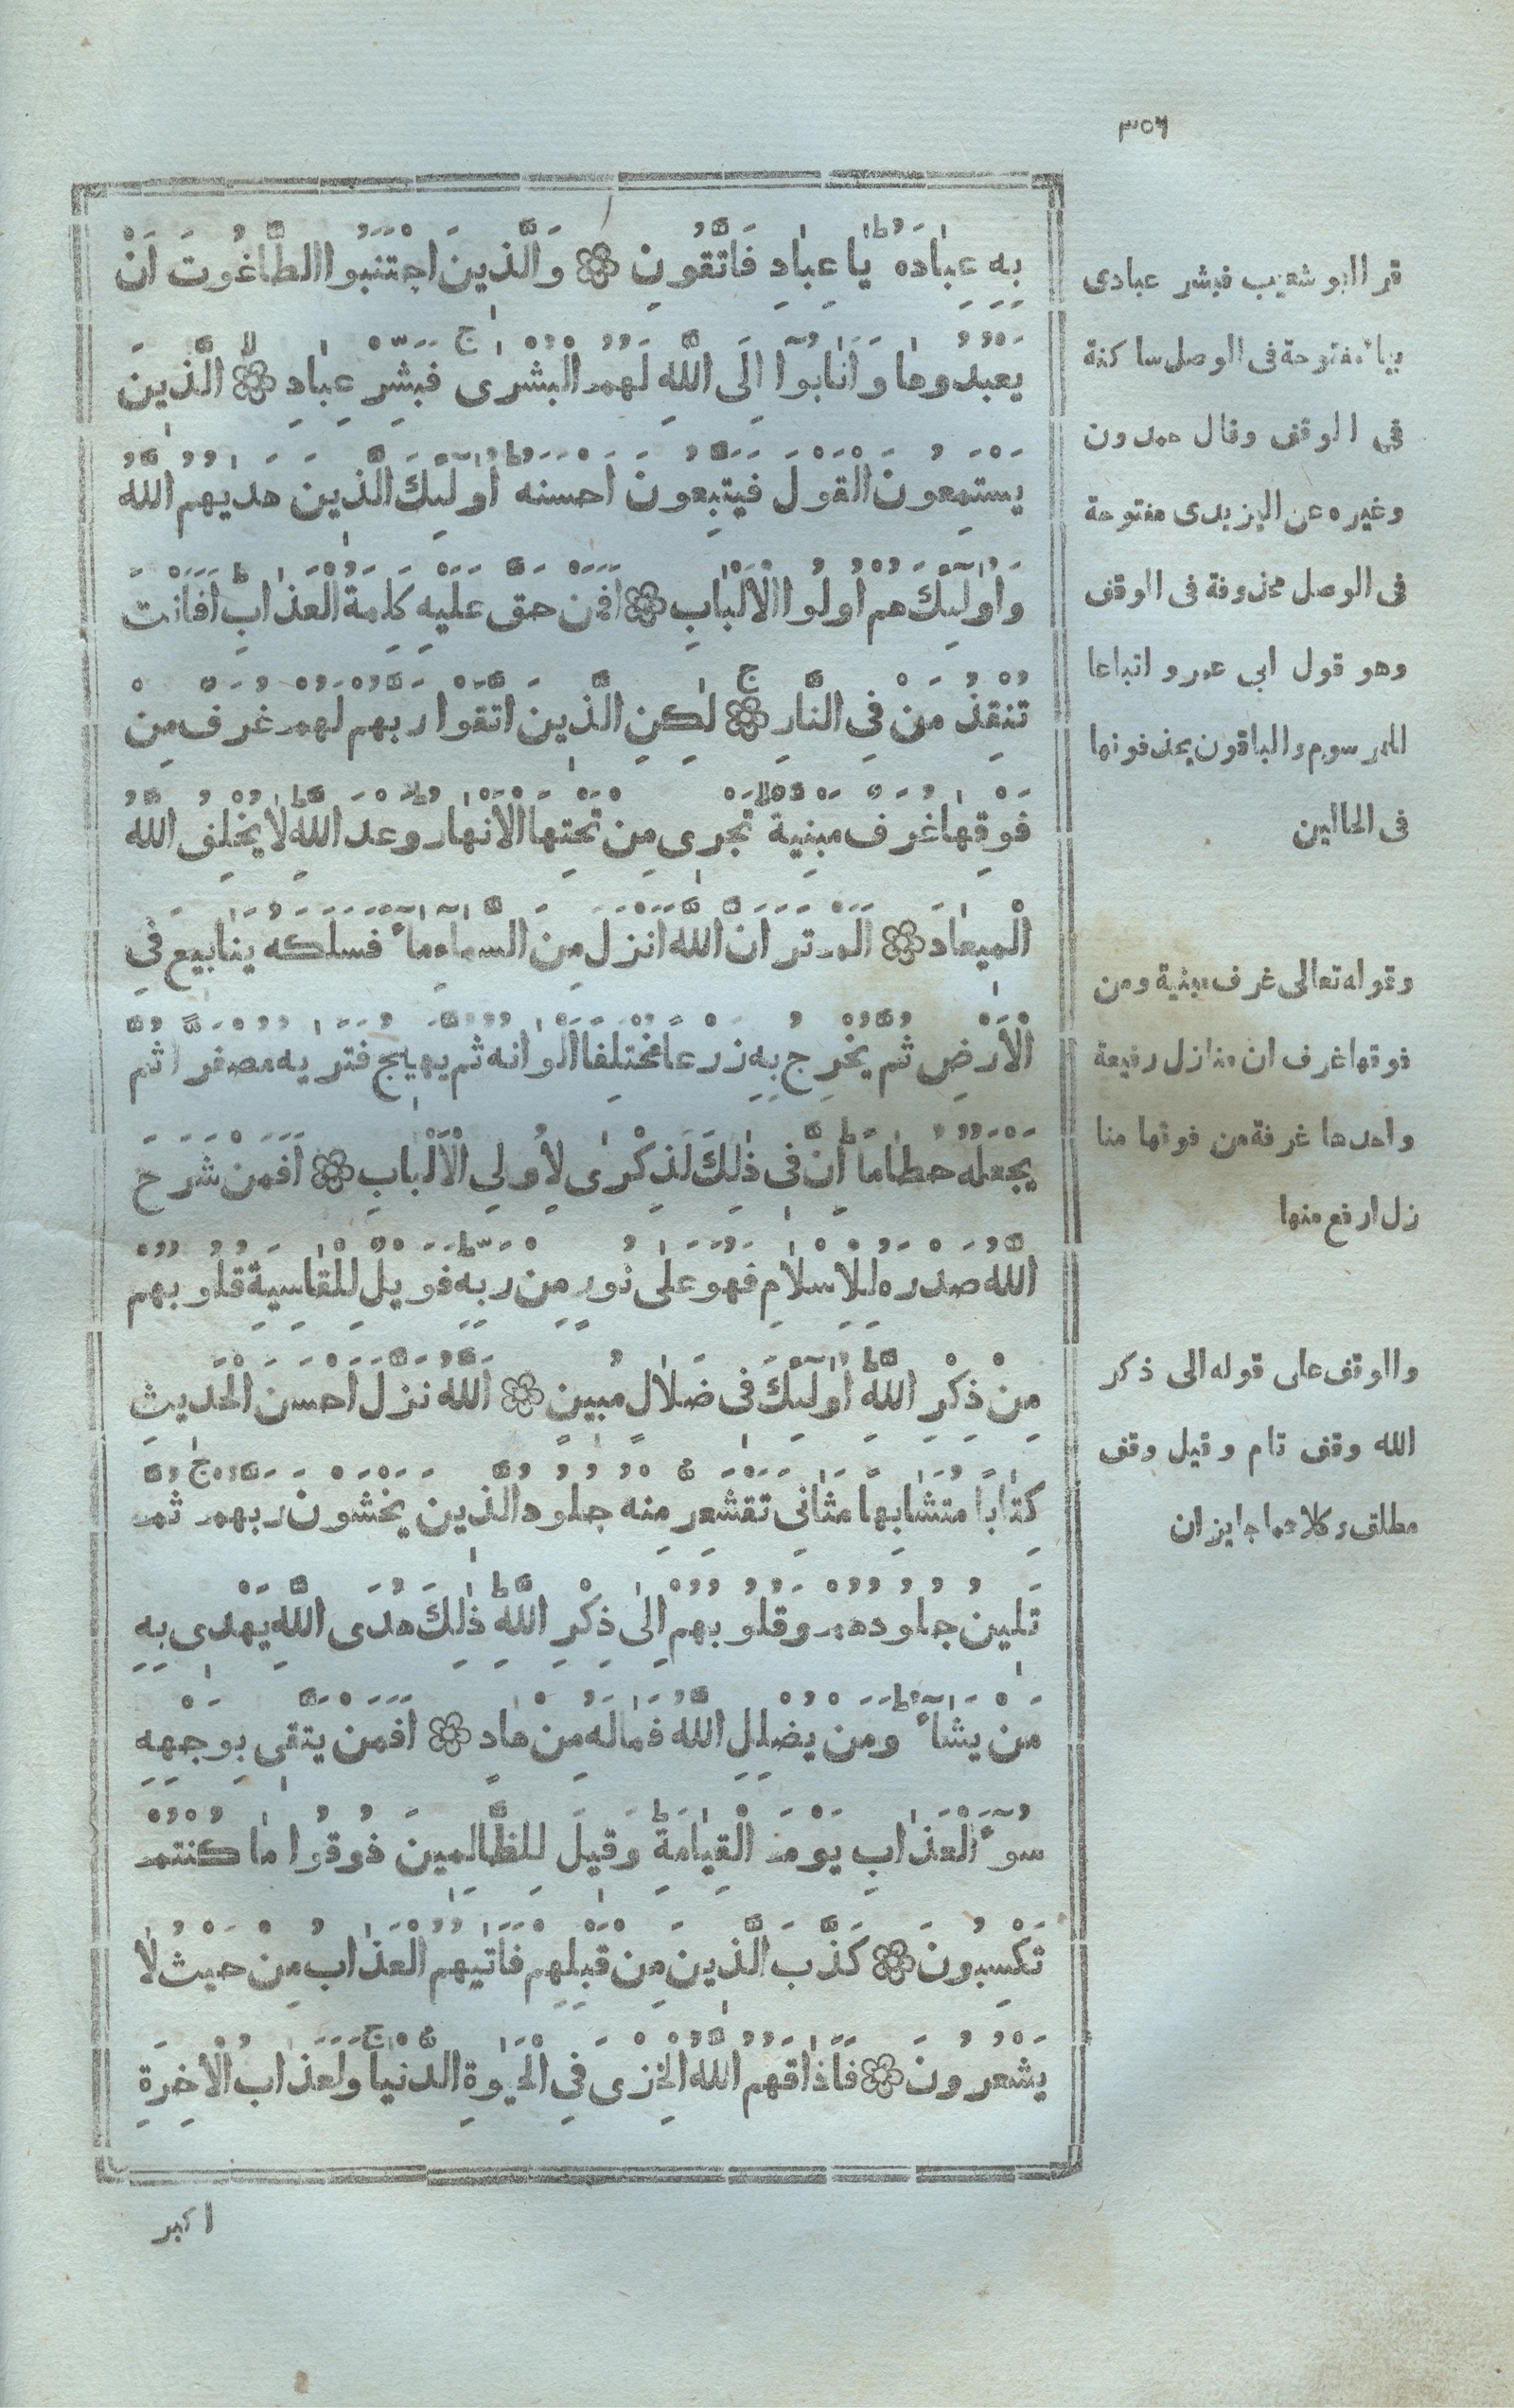 ٣٥٦
بِهِ عِبَادَهُ ط يَا عِبَادِ فَاتَّقُونِ ۝ وَالَّذِينَ اجْتَنَبُوا الطَّاغُوتَ اَنْ
يَعْبُدُوهَا وَاَنَابُوٓا اِلَى اللّٰهِ لَهُمُ الْبُشْرٰى ج فَبَشِّرْ عِبَادِ ۝ لا الَّذِينَ
يَسْتَمِعُونَ الْقَوْلَ فَيَتَّبِعُونَ اَحْسَنَهُ ط اُولٰٓئِكَ الَّذِينَ هَدٰيهُمُ اللّٰهُ
وَاُولٰٓئِكَ هُمْ اُولُوا الْاَلْبَابِ ۝ اَفَمَنْ حَقَّ عَلَيْهِ كَلِمَةُ الْعَذَابِ ط اَفَاَنْتَ
تُنْقِذُ مَنْ فِي النَّارِ ۝ ج لٰكِنِ الَّذِينَ اتَّقَوْا رَبَّهُمْ لَهُمْ غُرَفٌ مِنْ
فَوْقِهَا غُرَفٌ مَبْنِيَّةٌ لا تَجْرِي مِنْ تَحْتِهَا الْاَنْهَارُ ط وَعْدَ اللّٰهِ ط لَا يُخْلِفُ اللّٰهُ
الْمِيعَادَ ۝ اَلَمْ تَرَ اَنَّ اللّٰهَ اَنْزَلَ مِنَ السَّمَآءِ مَآءً فَسَلَكَهُ يَنَابِيعَ فِي
الْاَرْضِ ثُمَّ يُخْرِجُ بِهِ زَرْعًا مُخْتَلِفًا اَلْوَانُهُ ثُمَّ يَهِيجُ فَتَرٰيهُ مُصْفَرًّا ثُمَّ
يَجْعَلُهُ حُطَامًا ط اِنَّ فِي ذٰلِكَ لَذِكْرٰى لِاُولِي الْاَلْبَابِ ۝ اَفَمَنْ شَرَحَ
اللّٰهُ صَدْرَهُ لِلْاِسْلَامِ فَهُوَ عَلٰى نُورٍ مِنْ رَبِّهِ ط فَوَيْلٌ لِلْقَاسِيَةِ قُلُوبُهُمْ
مِنْ ذِكْرِ اللّٰهِ ط اُولٰٓئِكَ فِي ضَلَالٍ مُبِينٍ ۝ اَللّٰهُ نَزَّلَ اَحْسَنَ الْحَدِيثِ
كِتَابًا مُتَشَابِهًا مَثَانِيَ تَقْشَعِرُّ مِنْهُ جُلُودُ الَّذِينَ يَخْشَوْنَ رَبَّهُمْ ج ثُمَّ
تَلِينُ جُلُودُهُمْ وَقُلُوبُهُمْ اِلٰى ذِكْرِ اللّٰهِ ط ذٰلِكَ هُدَى اللّٰهِ يَهْدِي بِهِ
مَنْ يَشَآءُ ط وَمَنْ يُضْلِلِ اللّٰهُ فَمَا لَهُ مِنْ هَادٍ ۝ اَفَمَنْ يَتَّقِي بِوَجْهِهِ
سُوٓءَ الْعَذَابِ يَوْمَ الْقِيَامَةِ ط وَقِيلَ لِلظَّالِمِينَ ذُوقُوا مَا كُنْتُمْ
تَكْسِبُونَ ۝ كَذَّبَ الَّذِينَ مِنْ قَبْلِهِمْ فَاَتٰيهُمُ الْعَذَابُ مِنْ حَيْثُ لَا
يَشْعُرُونَ ۝ فَاَذَاقَهُمُ اللّٰهُ الْخِزْيَ فِي الْحَيٰوةِ الدُّنْيَا ج وَلَعَذَابُ الْاٰخِرَةِ
اكبر
قرا ابو شعيب فبشر عبادى
بياء مفتوحة فى الوصل ساكنة
فى الوقف وقال حمدون
وغيره عن اليزيدى مفتوحة
فى الوصل محذوفة فى الوقف
وهو قول ابى عمرو اتباعا
للمرسوم والباقون يحذفونها
فى الحالين
وقوله تعالى غرف مبنية ومن
فوقها غرف ان منازل رفيعة
واحدها غرفة من فوقها منا
زل ارفع منها
والوقف على قوله الى ذكر
الله وقف تام وقيل وقف
مطلق وكلاهما جايزان